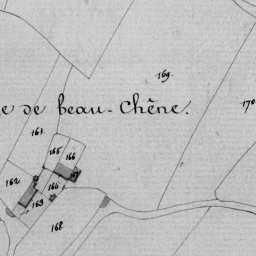 169.
170
e de beau-Chêne.
161.
165
166
162
164
163
168